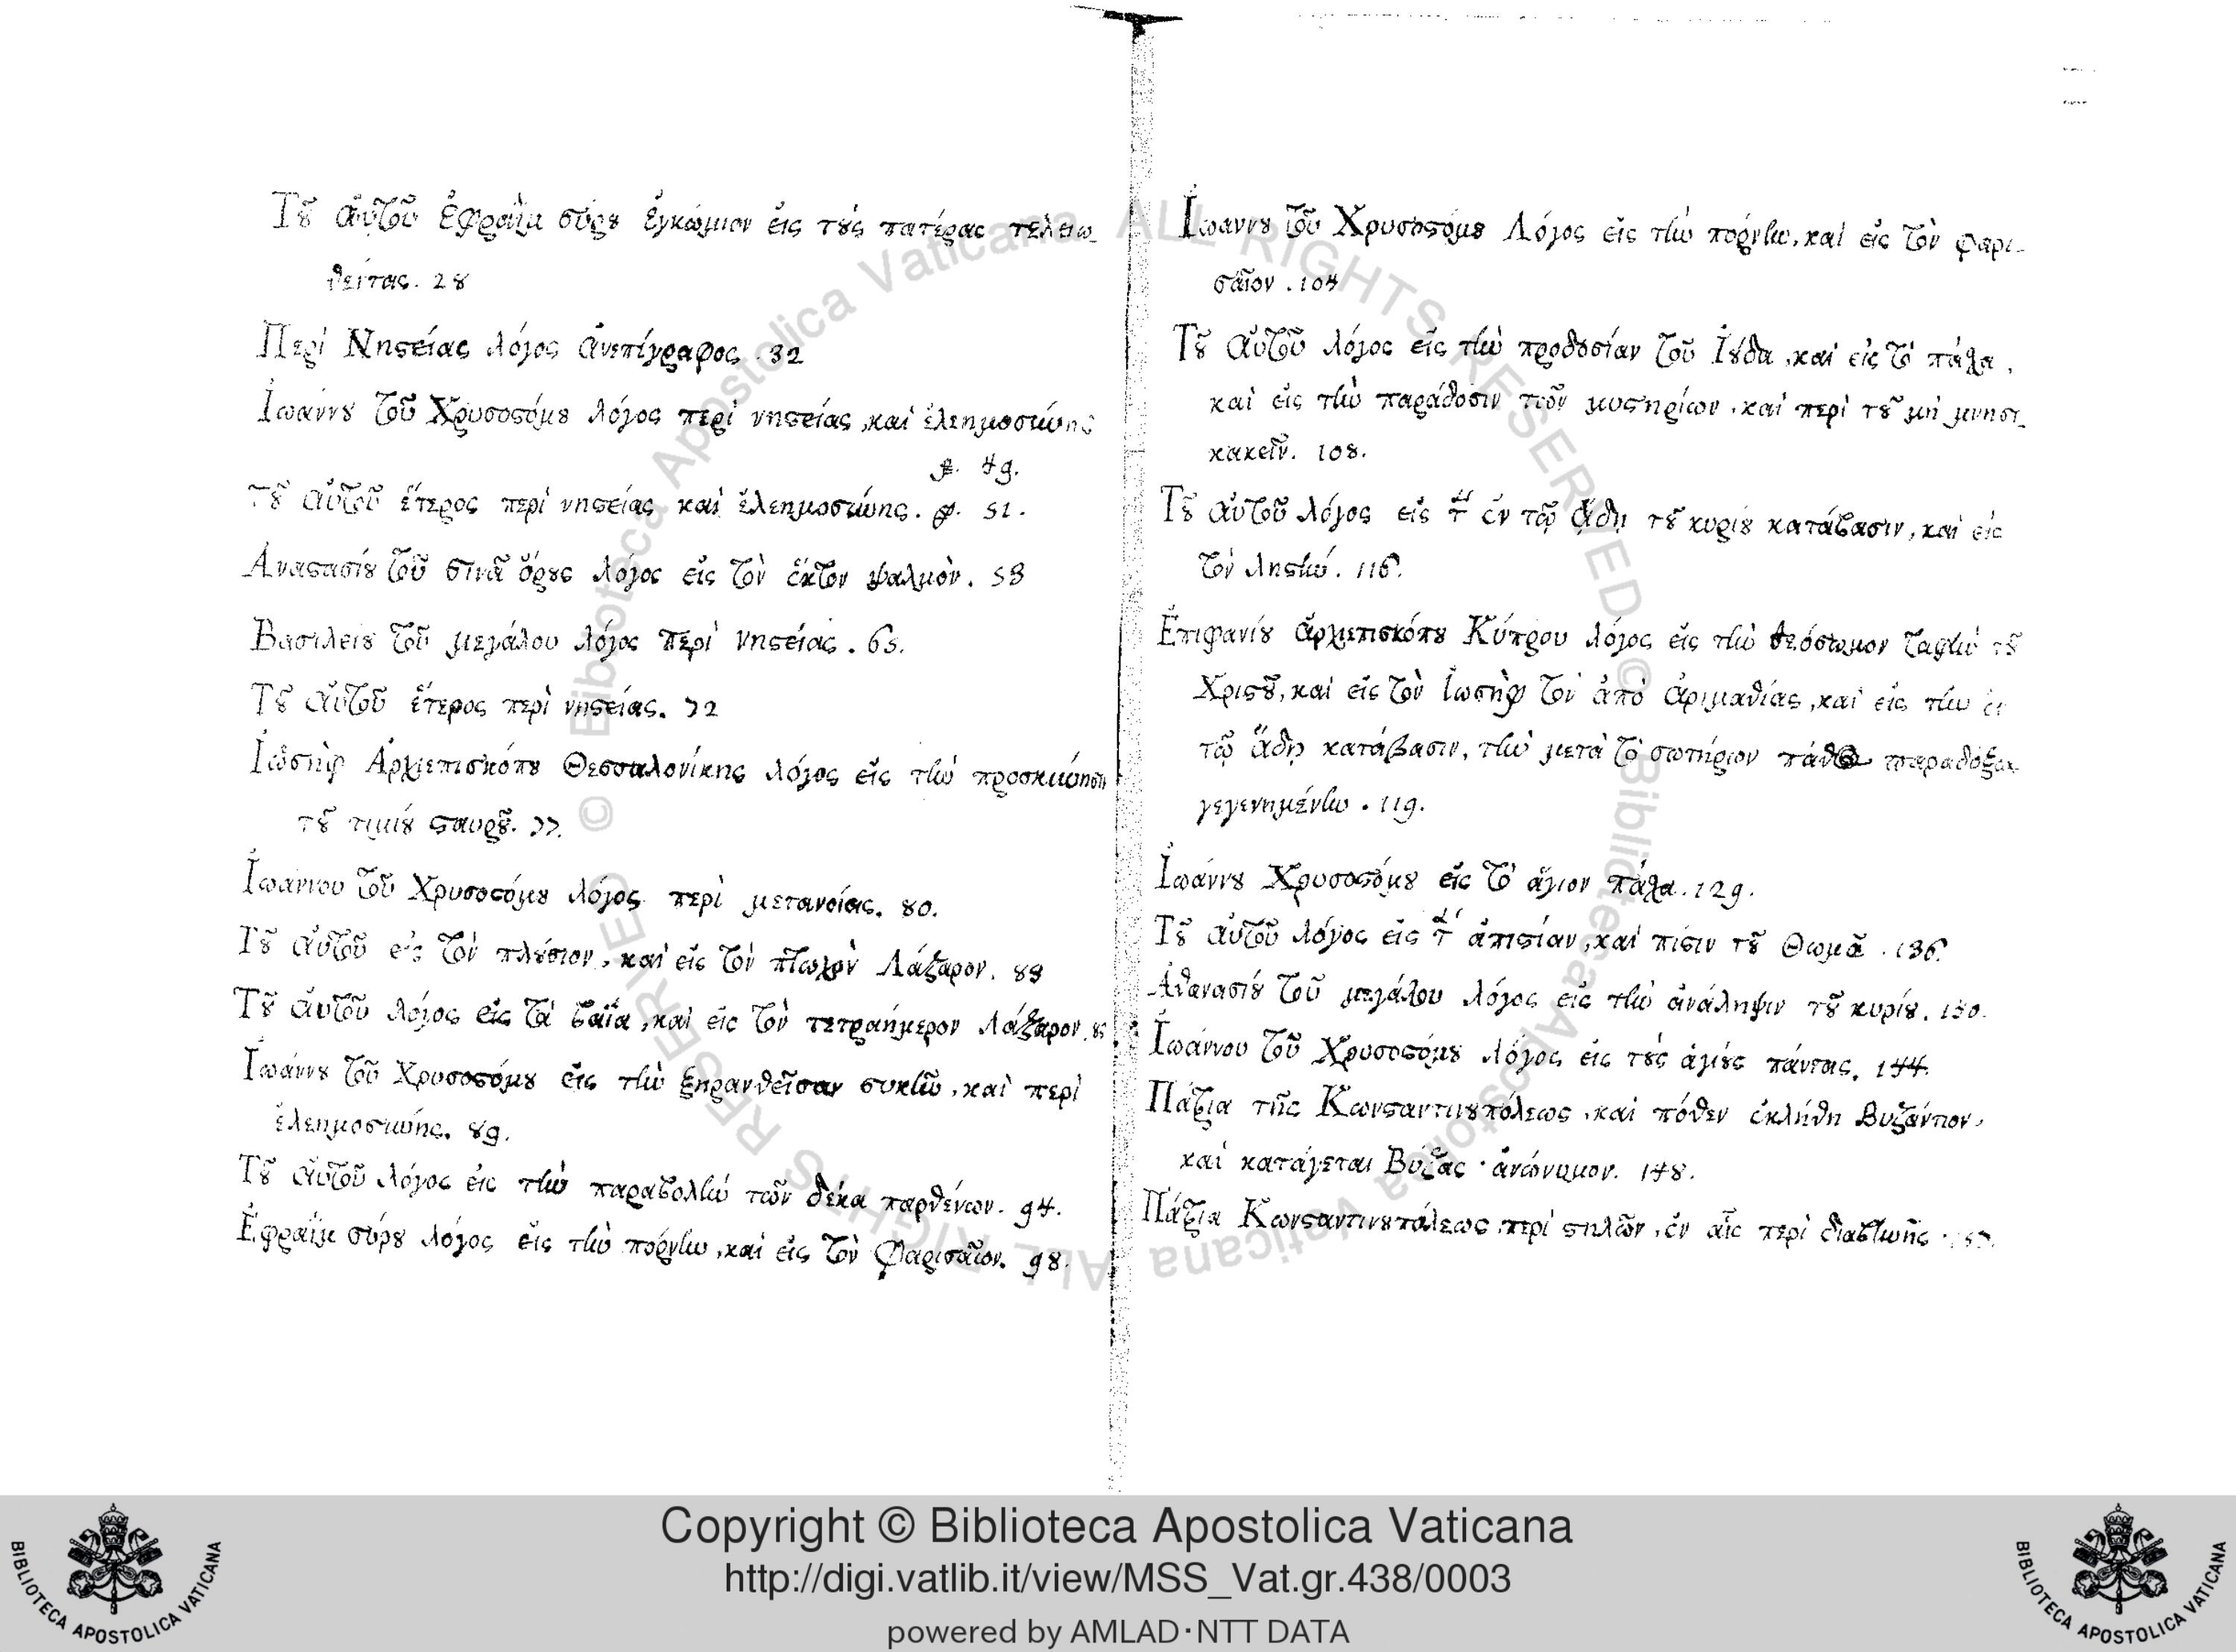 Τοῦ αὐτοῦ Ἐφραὶμ σύρου ἐγκώμιον εἰς τοὺς πατέρας τελειω_
θέντας. 28
Περὶ Νηστείας λόγος ἀνεπίγραφος. 32
Ἰωάννου τοῦ Χρυσοστόμου λόγος περὶ νηστείας, καὶ ἐλεημοσύνης
49.
τοῦ αὐτοῦ ἕτερος περὶ νηστείας καὶ ἐλεημοσύνης. 51.
Ἀναστασίου τοῦ σινᾶ ὄρους λόγος εἰς τὸν ἕκτον ψαλμὸν. 53
Βασιλείου τοῦ μεγάλου λόγος περὶ νηστείας. 65.
Τοῦ αὐτοῦ ἕτερος περὶ νηστείας. 72
Ἰωσὴφ Ἀρχιεπισκόπου Θεσσαλονίκης λόγος εἰς τὴν προσκύνησιν
τοῦ τιμίου σταυροῦ. 77.
Ἰωάννου τοῦ Χρυσοστόμου λόγος περὶ μετανοίας. 80.
Τοῦ αὐτοῦ εἰς τὸν πλούσιον, καὶ εἰς τὸν πτωχὸν Λάζαρον. 83
Τοῦ αὐτοῦ λόγος εἰς τὰ βαΐα, καὶ εἰς τὸν τετραήμερον Λάζαρον.
Ἰωάννου τοῦ Χρυσοστόμου εἰς τὴν ξηρανθεῖσαν συκῆν, καὶ περὶ
ἐλεημοσύνης. 89.
Τοῦ αὐτοῦ λόγος εἰς τὴν παραβολὴν τῶν δέκα παρθένων. 94.
Ἐφραὶμ σύρου λόγος εἰς τὴν πόρνην, καὶ εἰς τὸν Φαρισαῖον. 98.
Ἰωάννου τοῦ Χρυσοστόμου Λόγος εἰς τὴν πόρνην, καὶ εἰς τὸν φαρι_
σαῖον. 104
Τοῦ αὐτοῦ λόγος εἰς τὴν προδοσίαν τοῦ Ἰούδα, καὶ εἰς τὸ πάσχα,
καὶ εἰς τὴν παράδοσιν τῶν μυστηρίων, καὶ περὶ τοῦ μὴ μνησι_
κακεῖν. 108.
Τοῦ αὐτοῦ λόγος εἰς τὴν ἐν τῷ ᾅδῃ τοῦ κυρίου κατάβασιν, καὶ εἰς
τὸν λῃστήν. 116.
Ἐπιφανίου ἀρχιεπισκόπου Κύπρου λόγος εἰς τὴν θεόσωμον ταφὴν τοῦ
Χριστοῦ, καὶ εἰς τὸν Ἰωσὴφ τὸν ἀπὸ ἀριμαθίας, καὶ εἰς τὴν ἐν
τῷ ᾅδῃ κατάβασιν, τὴν μετὰ τὸ σωτήριον πάθος παραδόξως
γεγενημένην. 119.
Ἰωάννου Χρυσοστόμου εἰς τὸ ἅγιον πάσχα. 129.
Τοῦ αὐτοῦ λόγος εἰς τὴν ἀπιστίαν, καὶ πίστιν τοῦ Θωμᾶ. 136.
Ἀθανασίου τοῦ μεγάλου λόγος εἰς τὴν ἀνάληψιν τοῦ κυρίου.
Ἰωάννου τοῦ Χρυσοστόμου λόγος εἰς τοὺς ἁγίους πάντας. 144.
Πάτρια τῆς Κωνσταντινουπόλεως, καὶ πόθεν ἐκλήθη Βυζάντιον,
καὶ κατάγεται Βύζας. ἀνώνυμον. 148.
Πάτρια Κωνσταντινουπόλεως περὶ στηλῶν, ἐν αἷς περὶ
Copyright © Biblioteca Apostolica Vaticana
http://digi.vatlib.it/view/MSS_Vat.gr.438/0003
powered by AMLAD·NTT DATA
BIBLIOTECA APOSTOLICA VATICANA
BIBLIOTECA APOSTOLICA VATICANA
© Biblioteca Apostolica Vaticana ALL RIGHTS RESERVED
© Biblioteca Apostolica Vaticana ALL RIGHTS RESERVED